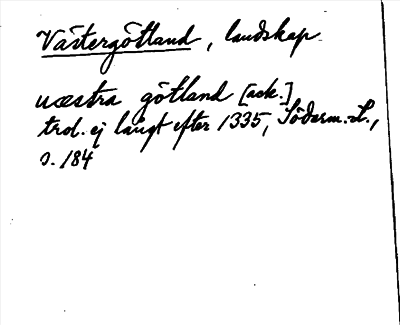 Västergötland, landskap.
uæstra götland [ack.]
trol. ej långt efter 1335, Söderm.-L.,
s. 184